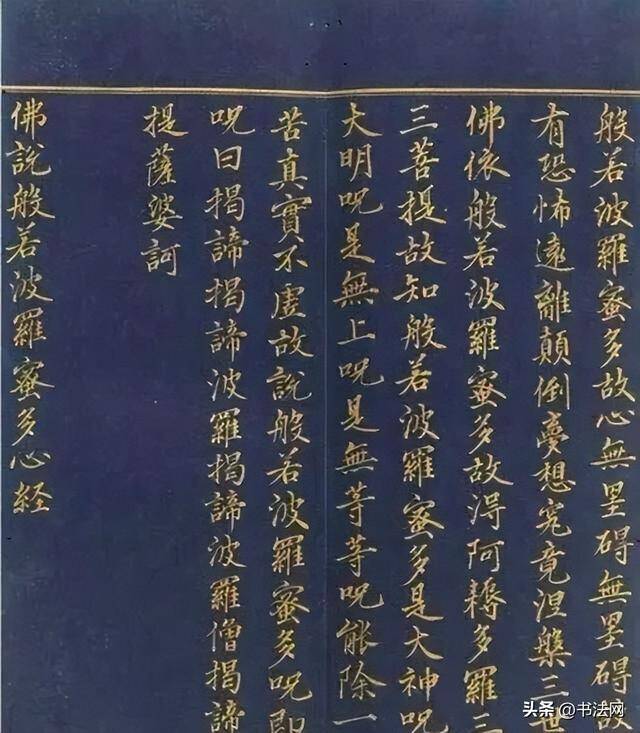 般若波羅蜜多故心無罣碍無罣碍故
有恐怖遠離顛倒夢想究竟涅槃三世
佛依般若波羅蜜多故得阿耨多羅三
三菩提故知般若波羅蜜多是大神呪
大明呪是無上呪是無等等呪能除一
苦真實不虛故說般若波羅蜜多呪即
呪曰揭諦揭諦波羅揭諦波羅僧揭諦
提薩婆訶
佛說般若波羅蜜多心経
头条 @书法网